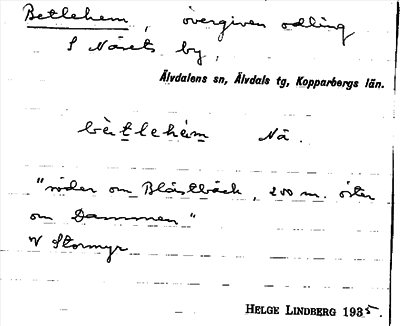 Betlehem, övergiven odling
S Näsets by,
Älvdalens sn, Älvdals tg, Kopparbergs län.
bètlehèm Nä.
"söder om Blästbäck, 200 m. öster
om Dammen"
V Stormyr
HELGE LINDBERG 1935.